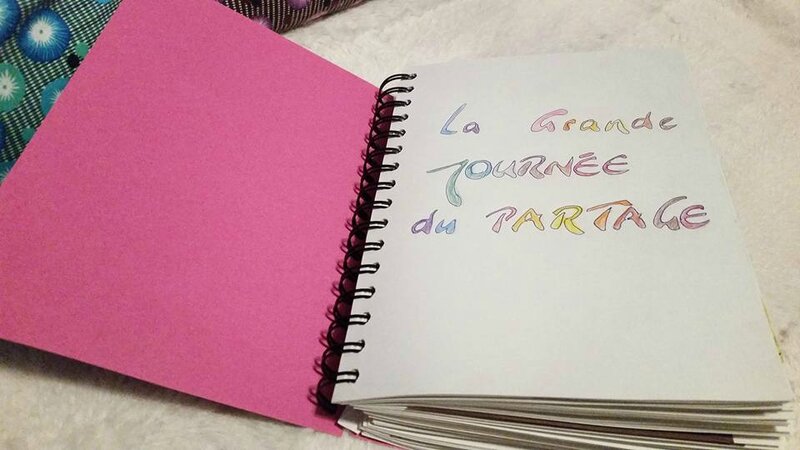 La Grande
JOURNÉE
du PARTAGE